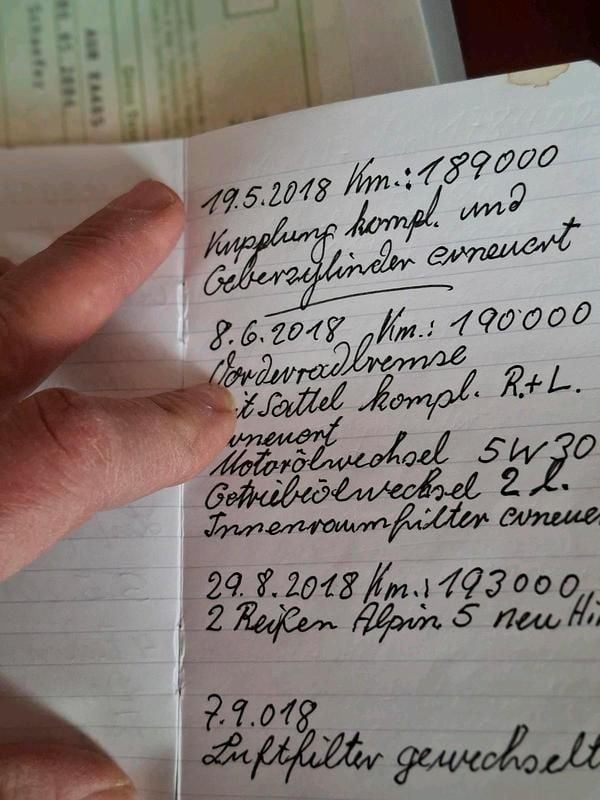 19.5.2018 Km.: 189000
Kupplung kompl. und
Geberzylinder erneuert
8.6.2018 Km.: 190'000
Vorderradbremse
it Sattel kompl. R.+L.
rneuert
Motorölwechsel 5W30
Getriebeölwechsel 2 l.
Innenraumfilter erneue
29.8.2018 Km.: 193000
2 Reifen Alpin 5 neu Hi
7.9.018
Luftfilter gewechselt